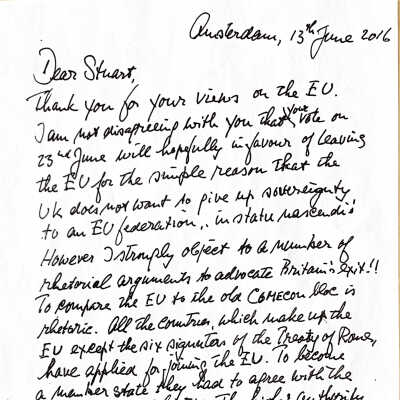 Amsterdam, 13th June 2016
Dear Stuart,
Thank you for your views on the EU.
I am not disagreeing with you that your vote on
23rd June will hopefully in favour of leaving
the EU for the simple reason that the
UK does not want to give up sovereignty
to an EU federation, "in statu nascendi"
However I strongly object to a number of
rhetorial arguments to advocate Britain's exit!!
To compare the EU to the old COMECON bloc is
rhetoric. All the countries, which make up the
EU except the six signators of the Treaty of Rome,
have applied for joining the EU. To become
a member state they had to agree with the